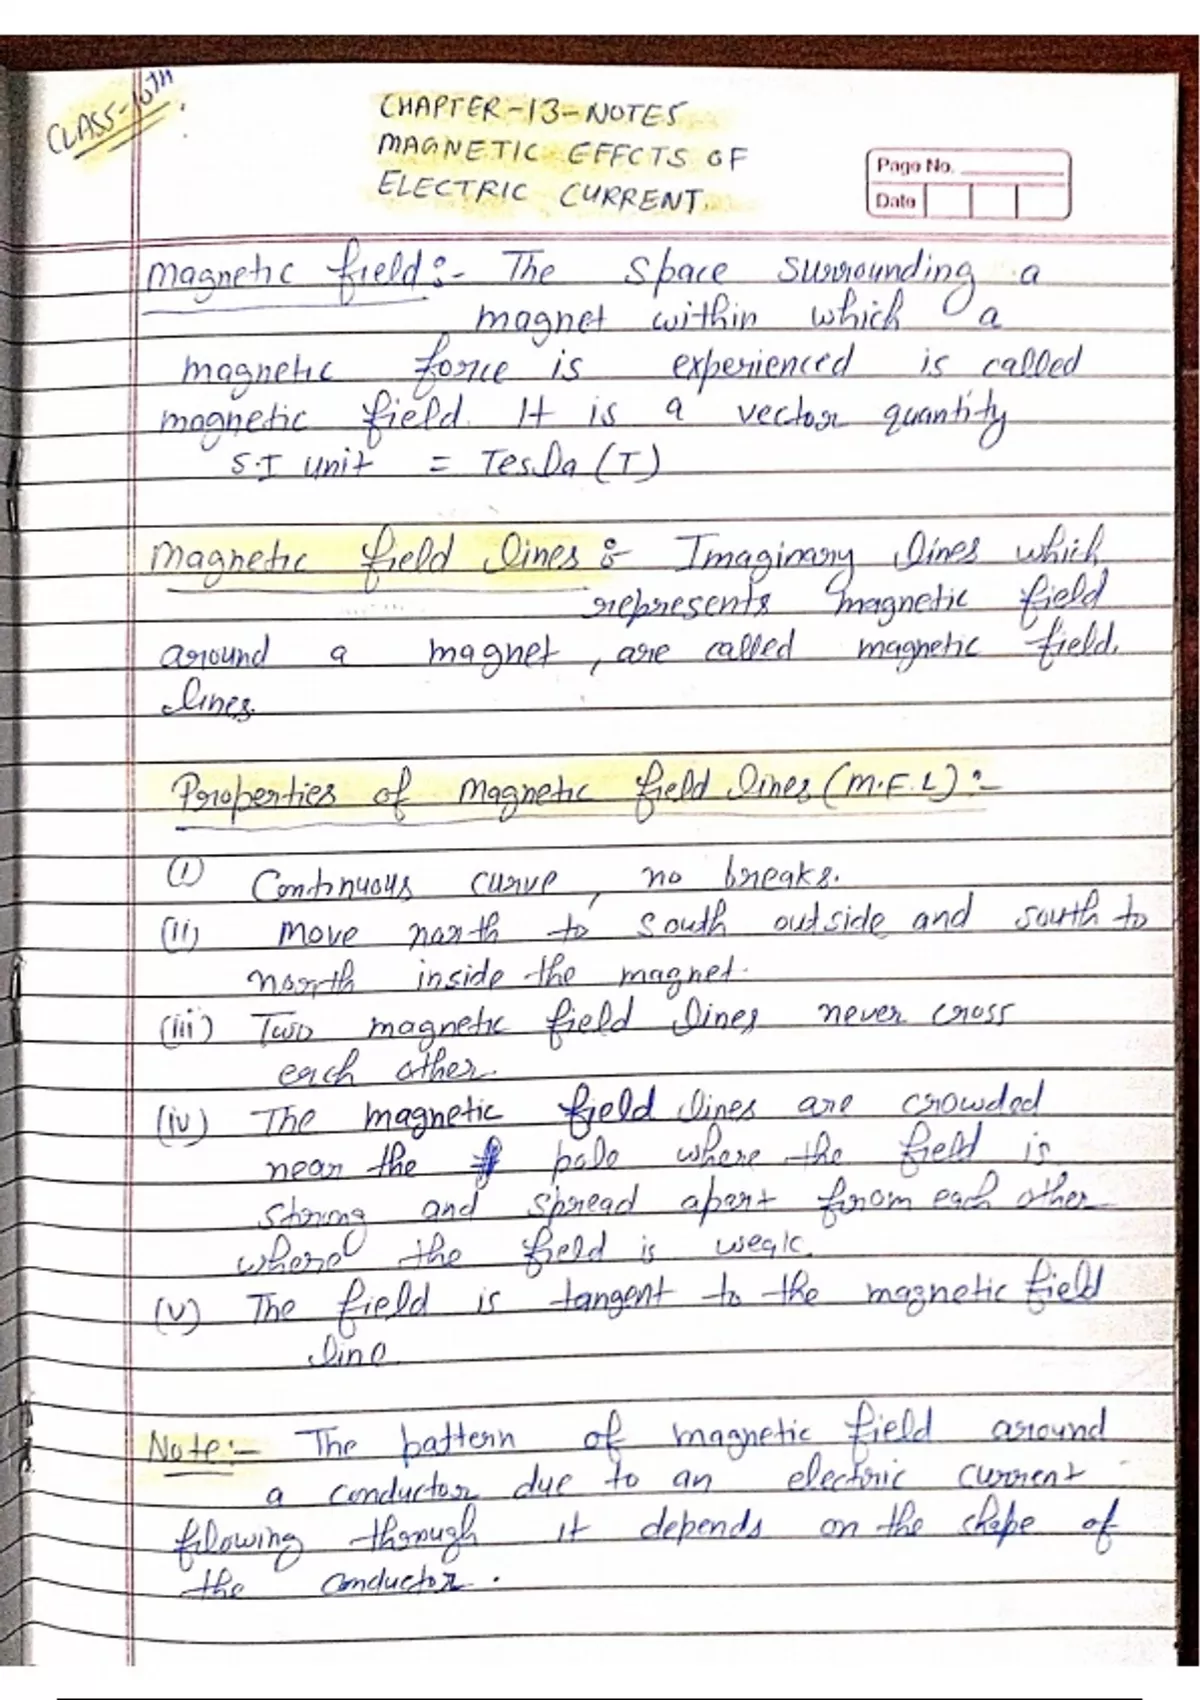 CLASS-10TH.
CHAPTER-13-NOTES
MAGNETIC EFFCTS OF
ELECTRIC CURRENT.
Page No.
Date
magnetic field:- The space surrounding a
magnet within which a
magnetic force is experienced is called
magnetic field. It is a vector quantity
S.I unit = Tesla (T)
Magnetic field lines :- Imaginary lines which
represents magnetic field
around a magnet, are called magnetic field.
lines.
Properties of Magnetic field lines (M.F.L) :-
(i) Continuous curve, no breaks.
(ii) move north to south outside and south to
north inside the magnet.
(iii) Two magnetic field lines never cross
each other.
(iv) The magnetic field lines are crowded
near the pole where the field is
strong and spread apart from each other
where the field is weak.
(v) The field is tangent to the magnetic field
line
Note:- The pattern of magnetic field around
a conductor due to an electric current
flowing through it depends on the shape of
the conductor.